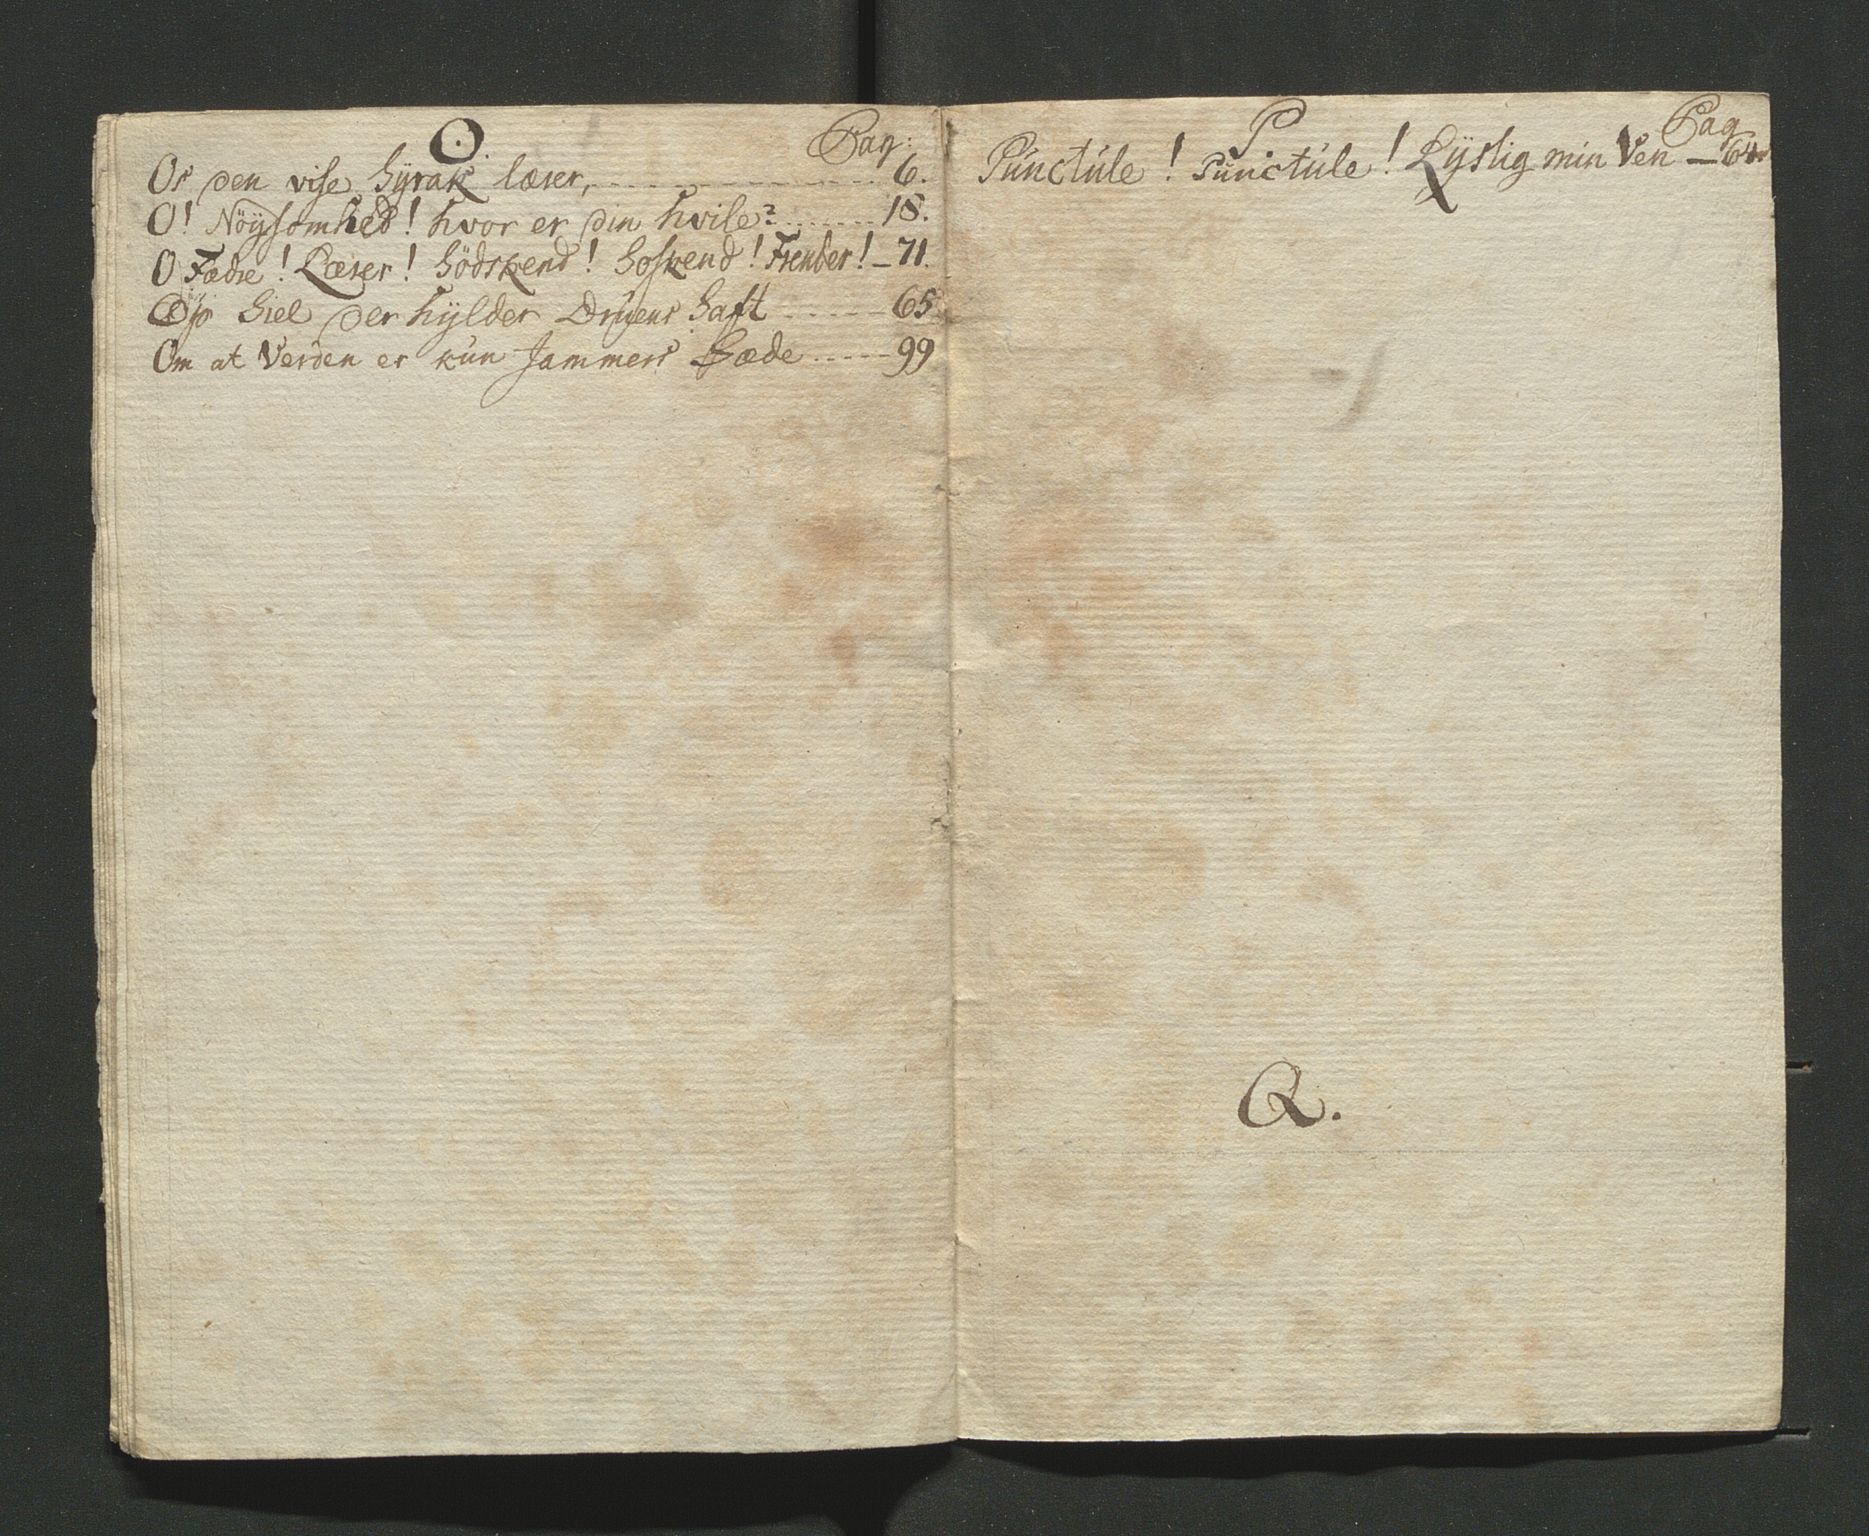 O.
Pag:
Os den vise Syrak lærer, 6.
O! Nöysomhed! hvor er din hvile? 18.
O Fædre! Læser! Södskend! Soskend! Frender! 71.
siel der hylder Druens Saft 65
Om at Verden er kun Jammers Sæde 99
P.
Pag
Punctule! Punctule! Lystig min Ven 64
Q.